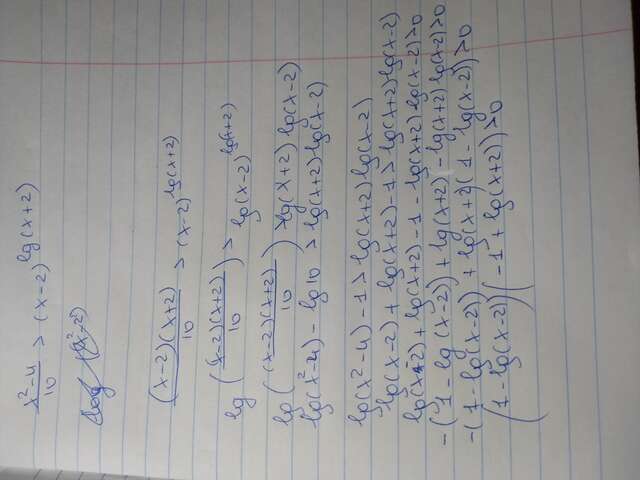 x²-4/10 > (x-2)^lg(x+2)
(x-2)(x+2)/10 > (x-2)^lg(x+2)
lg((x-2)(x+2)/10) > lg(x-2)^lg(x+2)
lg((x-2)(x+2)/10) > lg(x+2) lg(x-2)
lg(x²-4) - lg 10 > lg(x+2) lg(x-2)
lg(x²-4) - 1 > lg(x+2) lg(x-2)
lg(x-2) + lg(x+2) - 1 > lg(x+2) lg(x-2)
lg(x-2) + lg(x+2) - 1 - lg(x+2) lg(x-2) > 0
-(1 - lg(x-2)) + lg(x+2) - lg(x+2) lg(x-2) > 0
-(1 - lg(x-2)) + lg(x+2)(1 - lg(x-2)) > 0
(1 - lg(x-2))(-1 + lg(x+2)) > 0